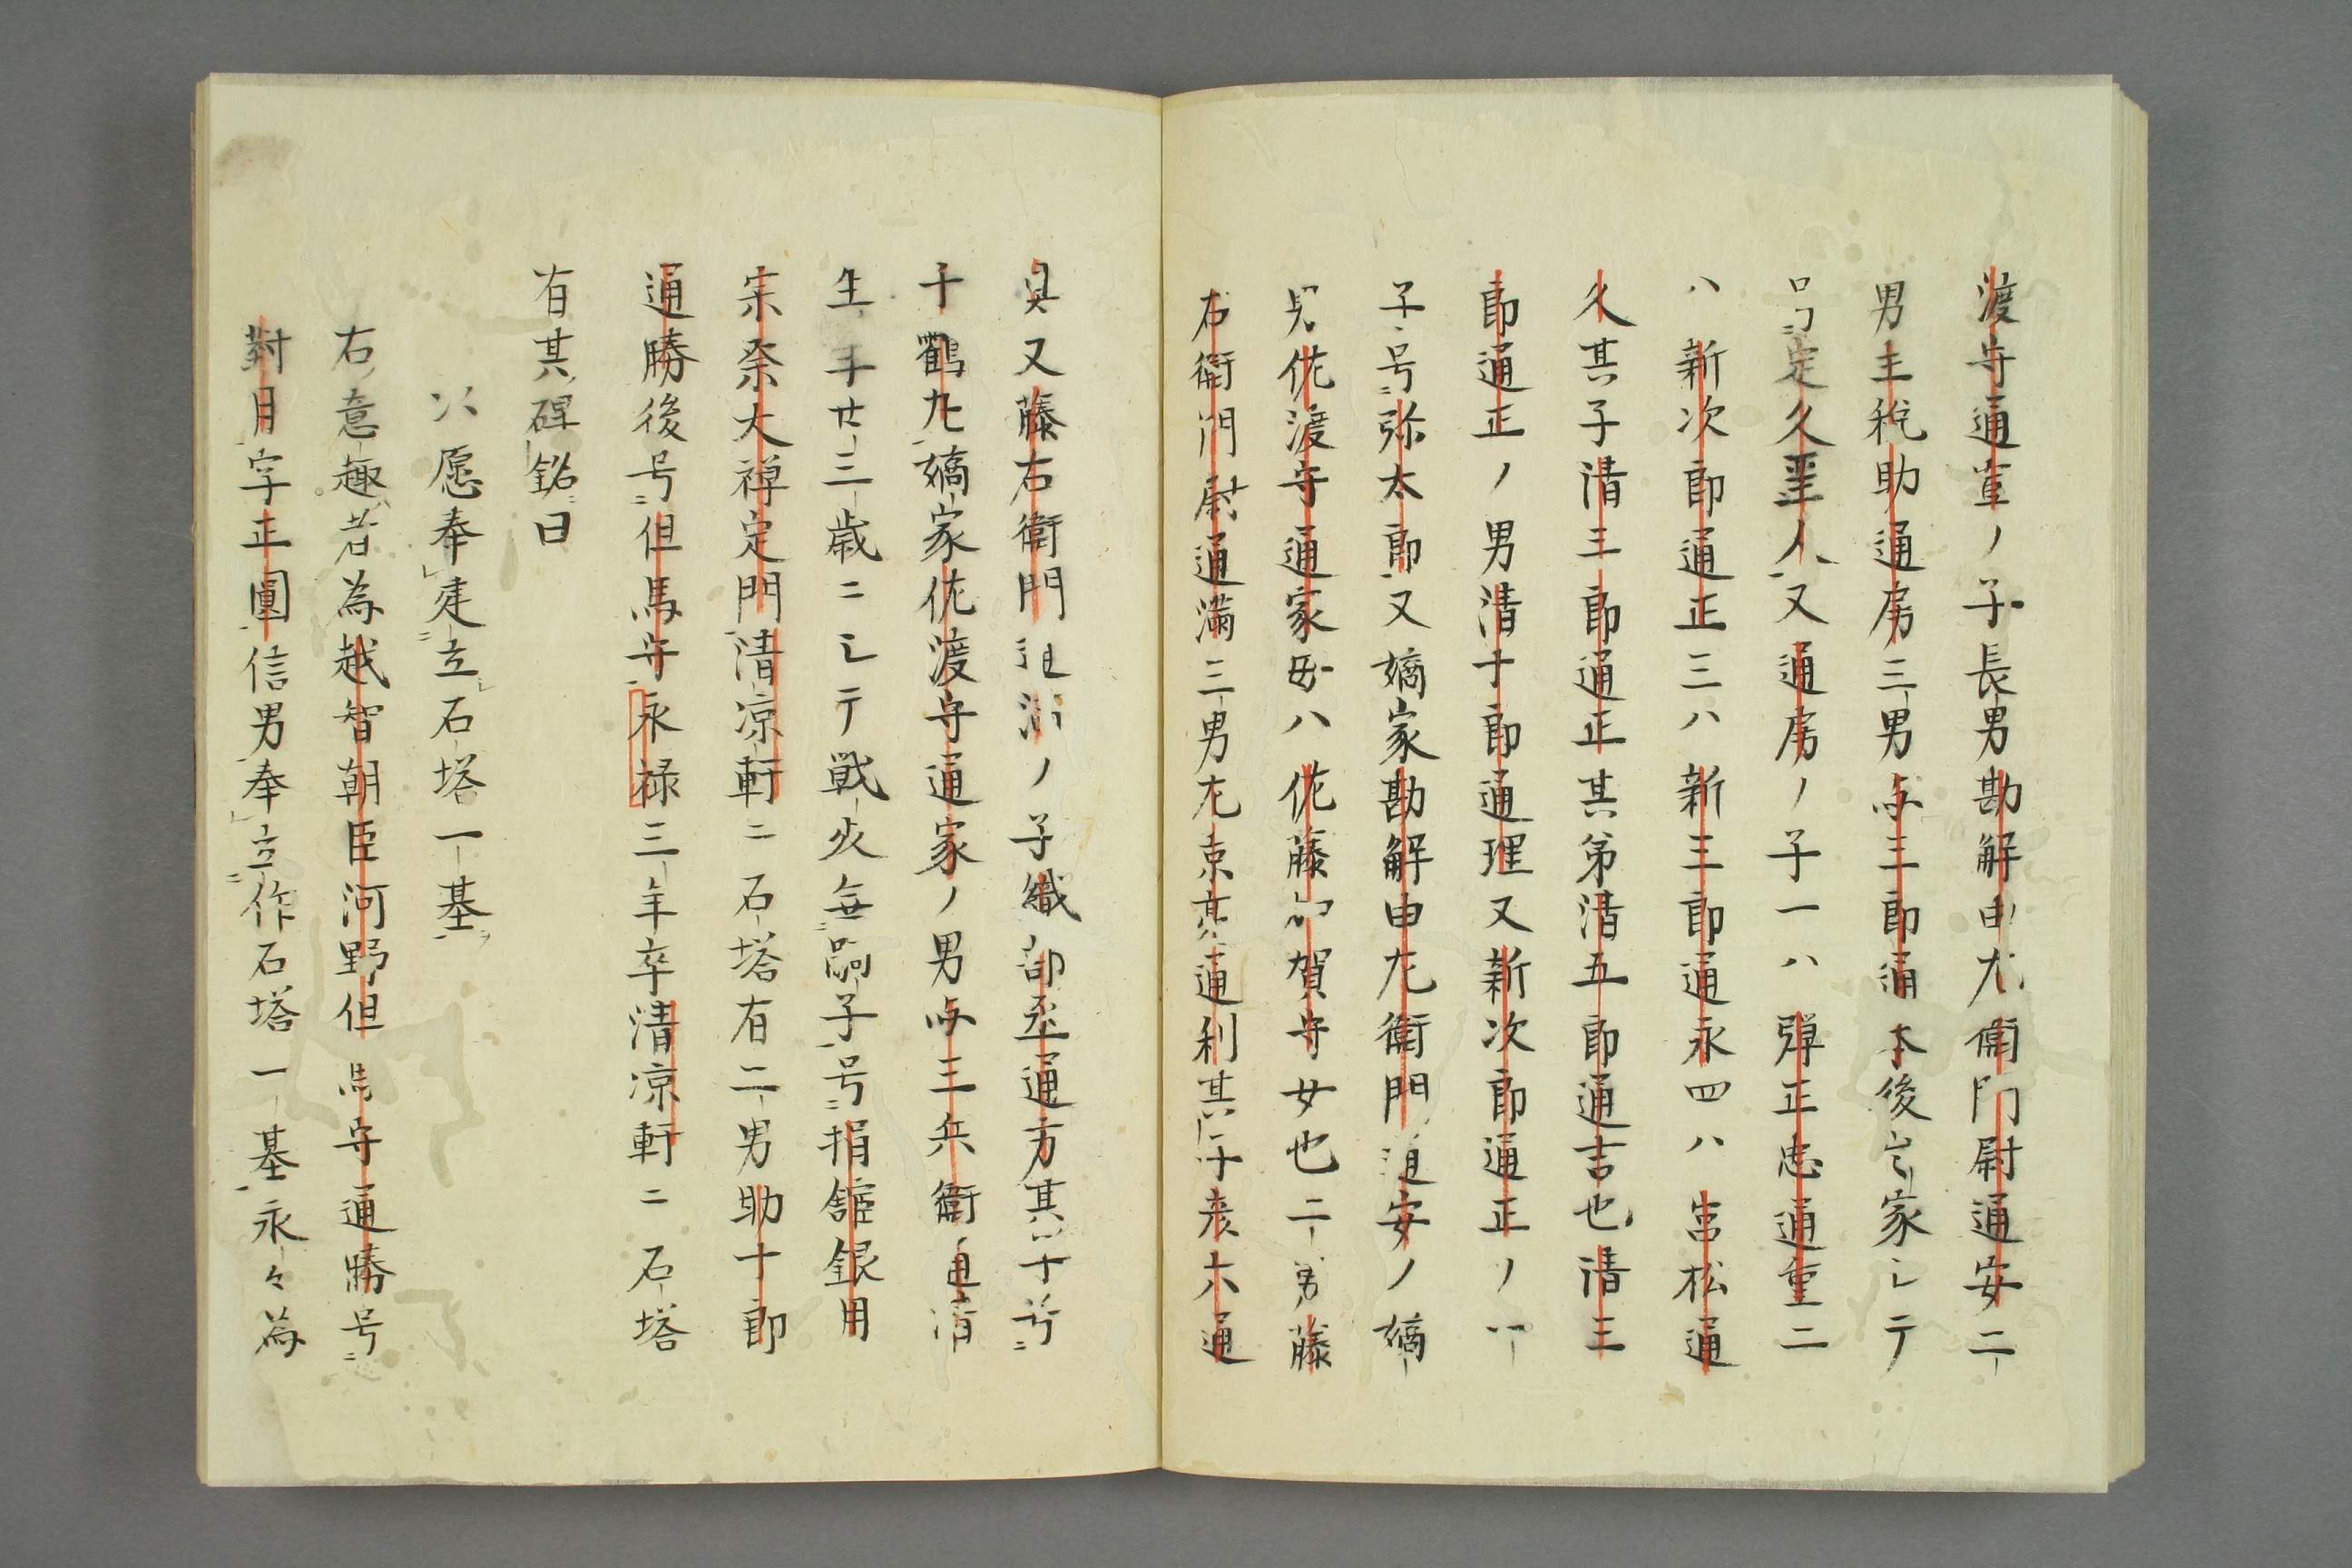 渡守通宣ノ子長男勘解由左衛門尉通安二
男主税助通房三男与三郎通本後出家シテ
号定久聖人又通房ノ子一ハ弾正忠通重二
ハ新次郎通正三ハ新三郎通永四ハ宮松通
久其子清三郎通正其弟清五郎通吉也清三
郎通正ノ男清十郎通理又新次郎通正ノ一
子号弥太郎又嫡家勘解由左衛門通安ノ嫡
男佐渡守通家母ハ佐藤加賀守女也二男藤
右衛門尉通満三男左京亮通利其子彦六通
貞又藤右衛門通満ノ子織部丞通方其子号
千鶴丸嫡家佐渡守通家ノ男与三兵衛通清
生年廿三歳ニシテ戦火無嗣子号捐舘銀用
宗祭大禅定門清凉軒ニ石塔有二男助十郎
通勝後号但馬守永禄三年卒清凉軒ニ石塔
有其碑銘曰
以愿奉建立石塔一基
右意趣者為越智朝臣河野但馬守通勝号
對月字正圓信男奉立作石塔一基永々為